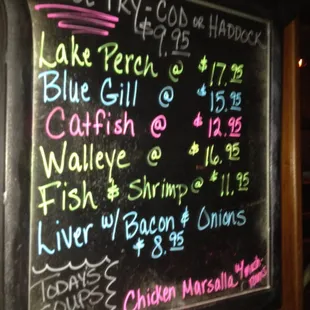 TRY - COD OR HADDOCK
$9.95
Lake Perch @ $17.95
Blue Gill @ $15.95
Catfish @ $12.95
Walleye @ $16.95
Fish & Shrimp @ $11.95
Liver w/ Bacon & Onions
$8.95
TODAYS
SOUPS
Chicken Marsalla w/